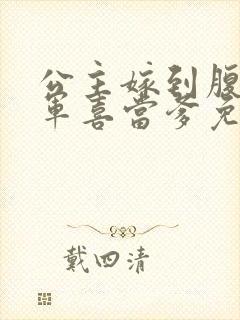 公主嫁到腹
軍喜當爹免
戴四清